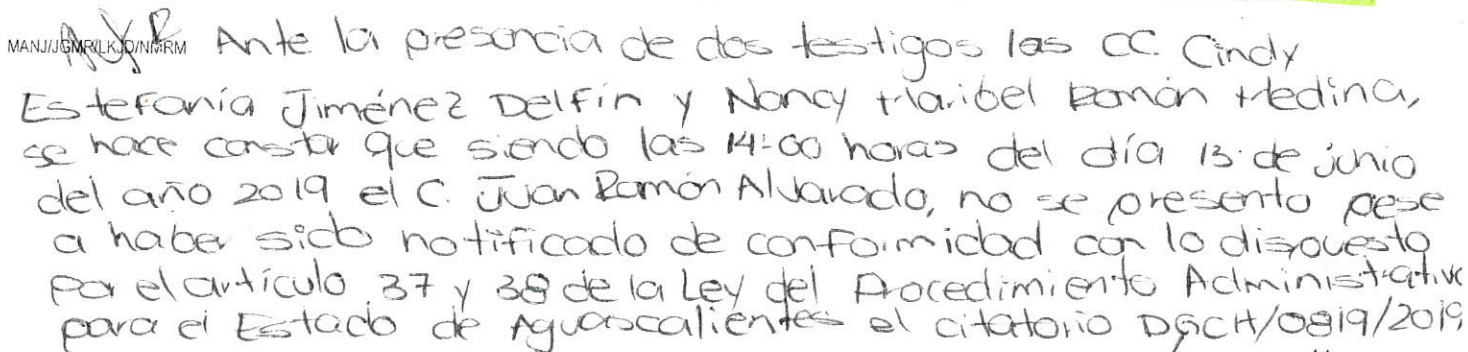 MANJ/JGMR/LKJD/NMRM Ante la presencia de dos testigos las CC. Cindy
Estefanía Jiménez Delfín y Nancy Maribel Román Medina,
se hace constar que siendo las 14:00 horas del día 13 de junio
del año 2019 el C. Juan Ramón Alvarado, no se presento pese
a haber sido notificado de conformidad con lo dispuesto
por el artículo 37 y 38 de la Ley del Procedimiento Administrativo
para el Estado de Aguascalientes el citatorio DGCH/0819/2019,